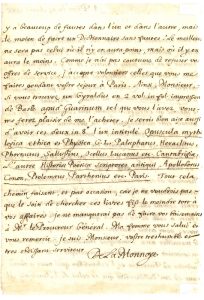 y a beaucoup de fautes dans l'un et dans l'autre, mais
le moien de faire un Dictionnaire sans fautes? Le meilleur
ne sera pas celui où il n'y en aura point, mais où il y en
aura le moins. Comme je n'ai pas coutume de refuser vos
offres de service, j'accepte volontiers celles que vous me
faites pendant votre sejour à Paris. Ainsi, Monsieur,
si vous trouvez un Gyraldus en 2. vol. in fol. impression
de Basle apud Guarinum cela que vous livrez, vous
me ferez plaisir de me l'acheter. Je serois bien aise aussi
d'avoir ces deux in 8.° l'un intitulé Opuscula mythologica
ethica et Physica Gr. L. Palaephatus, Heraclitus,
Phurnutus, Sallustius, Ocellus Lucanus etc. Cantabrigiae,
L'autre Historiae Poeticae Scriptores antiqui Apollodorus
Conon, Ptolemaeus Parthenius etc. Paris. Tous cela
chemin faisant, et par occasion, car je ne voudrois pas
que le soin de chercher ces livres fist le moindre tort à
vos affaires. Je ne manquerai pas de faire vos
à Mr. le Procureur General. Ma femme vous salue et
vous remercie. Je suis Monsieur, votre tres humble et
tres obeissant serviteur
De La Monnoye